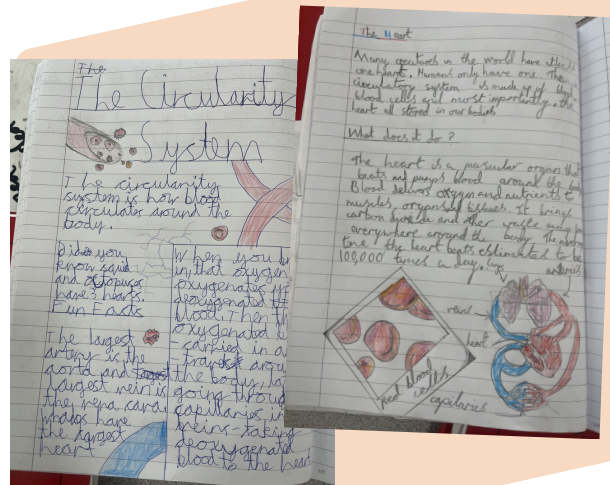 The
The Circularity
System
The circularity
system is how blood
circulates around the
body.
Dide you
know squid
and octopuses
have 3 hearts.
Fun Facts
The largest
artery is the
aorta and
largest vein is
the vena cava
whales have
the largest
heart
When you b
in that oxygen
oxygenates
deoxygenated
blood. Then th
oxygenated b
carried in a
arou
the body,
going throug
capilaries
veins-taking
deoxygenated
blood to the hear
The Heart
Many creatures in the world have
one heart. Humans only have one. The
circulatory system is made up of
blood cells and most importantly the
heart all stored in our bodies
What does it do?
The heart is a muscular organ tha
beats and pumps blood around the bod
Blood delivers oxygen and nutrients to
muscles, organs tissues. It brings
carbon dioxide and other waste away
everywhere around the body. The
the heart beats estimated to be
100,000 times a day. lungs
heart
Red blood
cells
capilarys